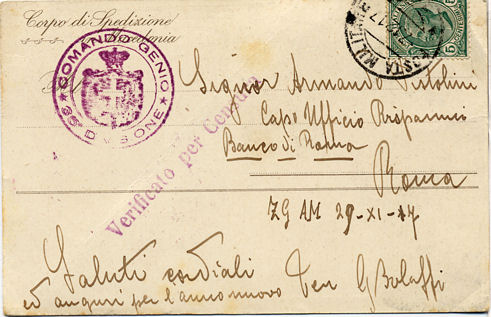 Corpo di Spedizione
Macedonia
COMANDO GENIO
35ª DIVISIONE
Verificato per Censura
POSTA MILIT
17
Signor Armando
Capo Ufficio Risparmi
Banco di Roma
Roma
ZG AM 29-XI-17
Saluti cordiali
ed auguri per l'anno nuovo Ten G Bolaffi